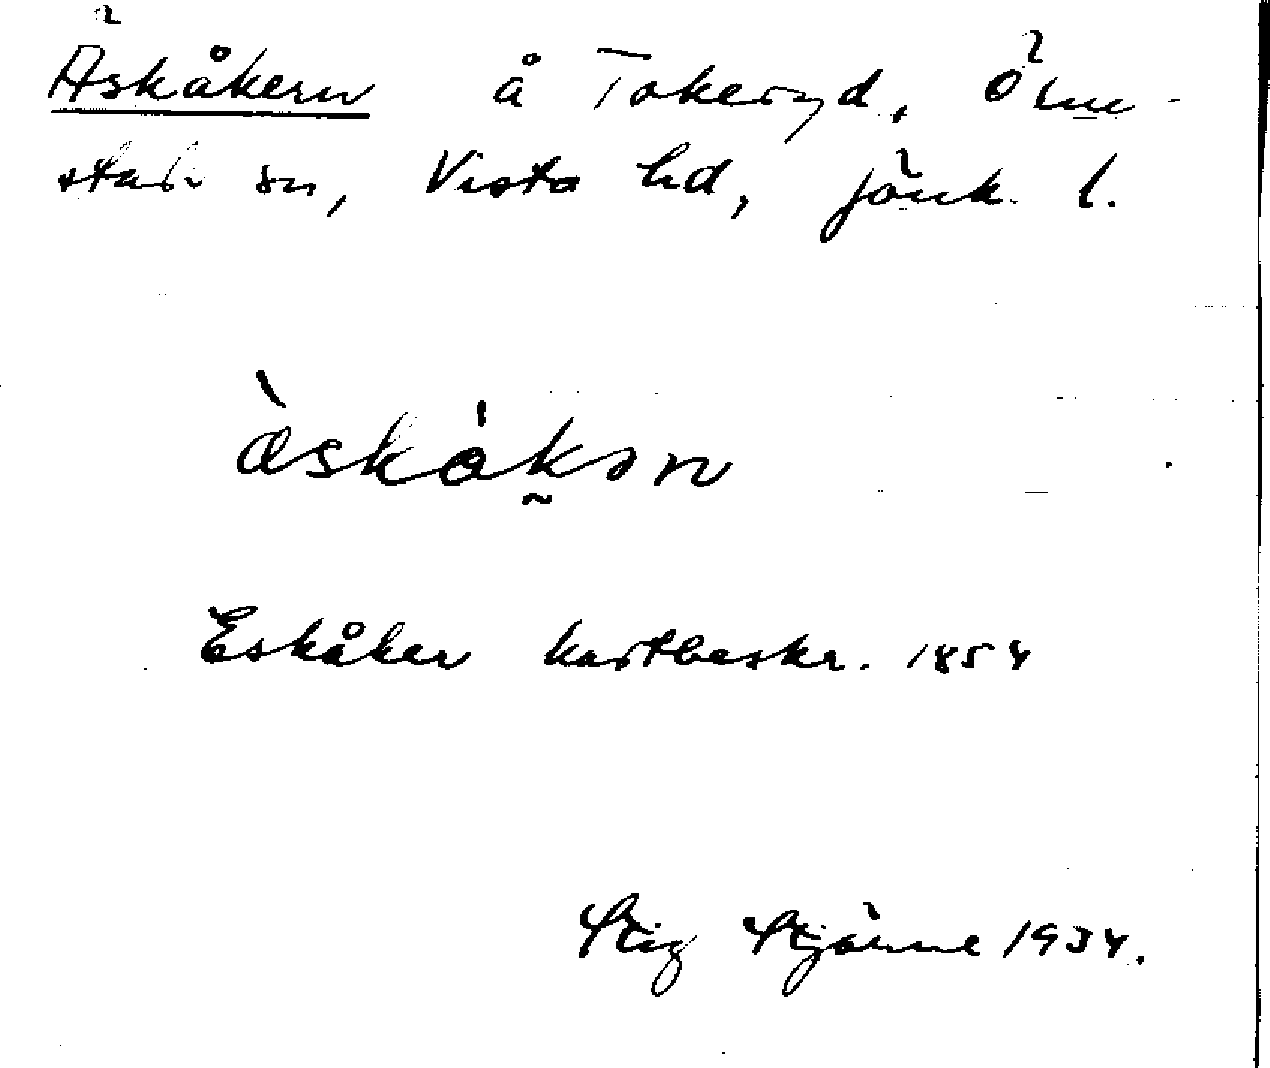 Äskåkern å Takeryd, Ölme-
stads sn, Vista hd, Jönk. l.
æ̀skåkən
Eskåker kartbeskr. 1854
Stig Stjärne 1934.